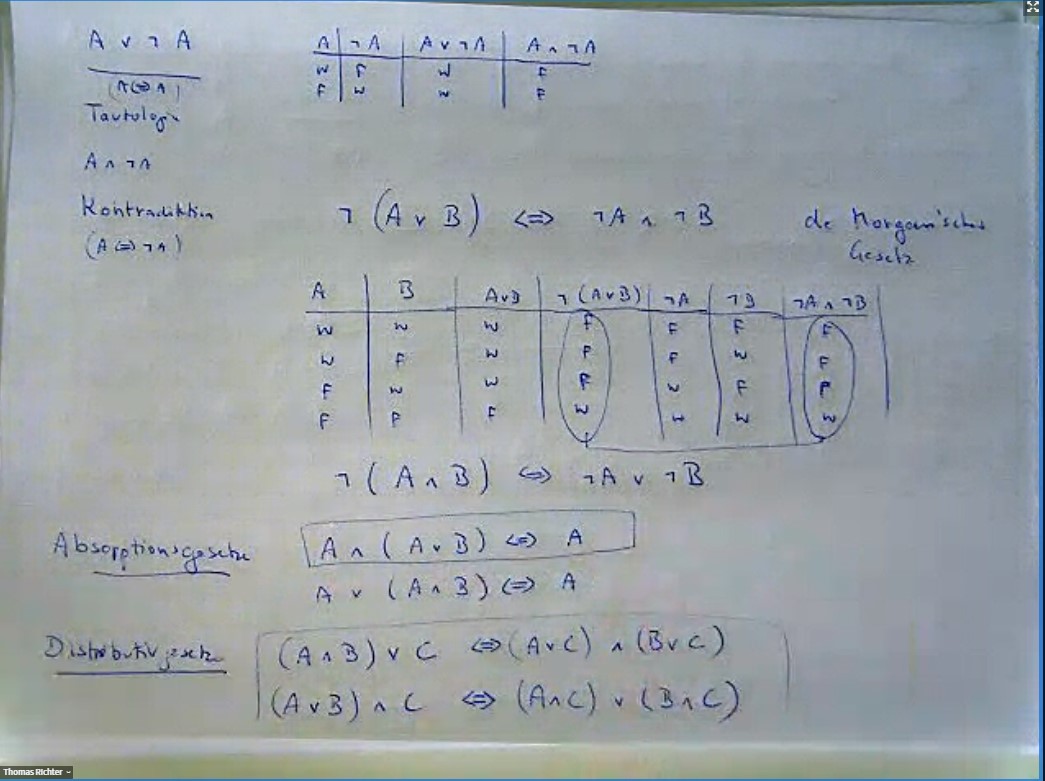 A ∨ ¬ A
(A ⇔ A)
Tautologie
A ∧ ¬A
Kontradiktion
(A ⇔ ¬A)
A | ¬A | A ∨ ¬A | A ∧ ¬A
W | F | W | F
F | W | W | F
¬ (A ∨ B) ⇔ ¬A ∧ ¬B de Morgan'sches
Gesetz
A | B | A∨B | ¬(A∨B) | ¬A | ¬B | ¬A ∧ ¬B
W | W | W | F | F | F | F
W | F | W | F | F | W | F
F | W | W | F | W | F | F
F | F | F | W | W | W | W
¬ (A ∧ B) ⇔ ¬A ∨ ¬B
Absorptionsgesetze A ∧ (A ∨ B) ⇔ A
A ∨ (A ∧ B) ⇔ A
Distributivgesetze (A ∧ B) ∨ C ⇔ (A∨C) ∧ (B∨C)
(A ∨ B) ∧ C ⇔ (A∧C) ∨ (B∧C)
Thomas Richter